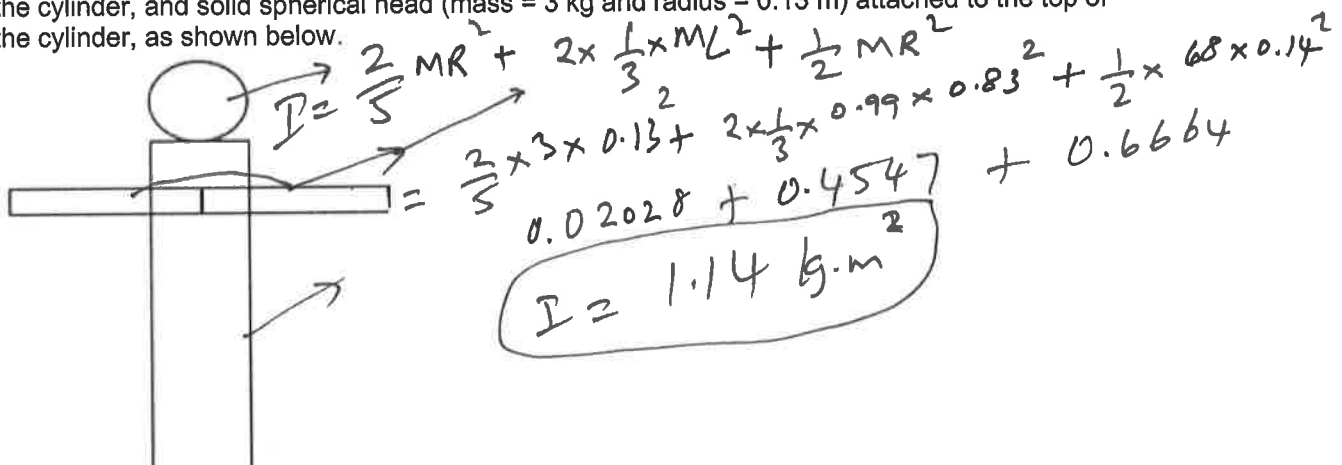 the cylinder, and solid spherical head (mass = 3 kg and radius = 0.13 m) attached to the top of
the cylinder, as shown below.
I = 2/5 MR² + 2x 1/3 x ML² + 1/2 MR²
= 2/5 x 3 x 0.13² + 2x 1/3 x 0.99 x 0.83² + 1/2 x 68 x 0.14²
0.02028 + 0.4547 + 0.6664
I = 1.14 kg.m²